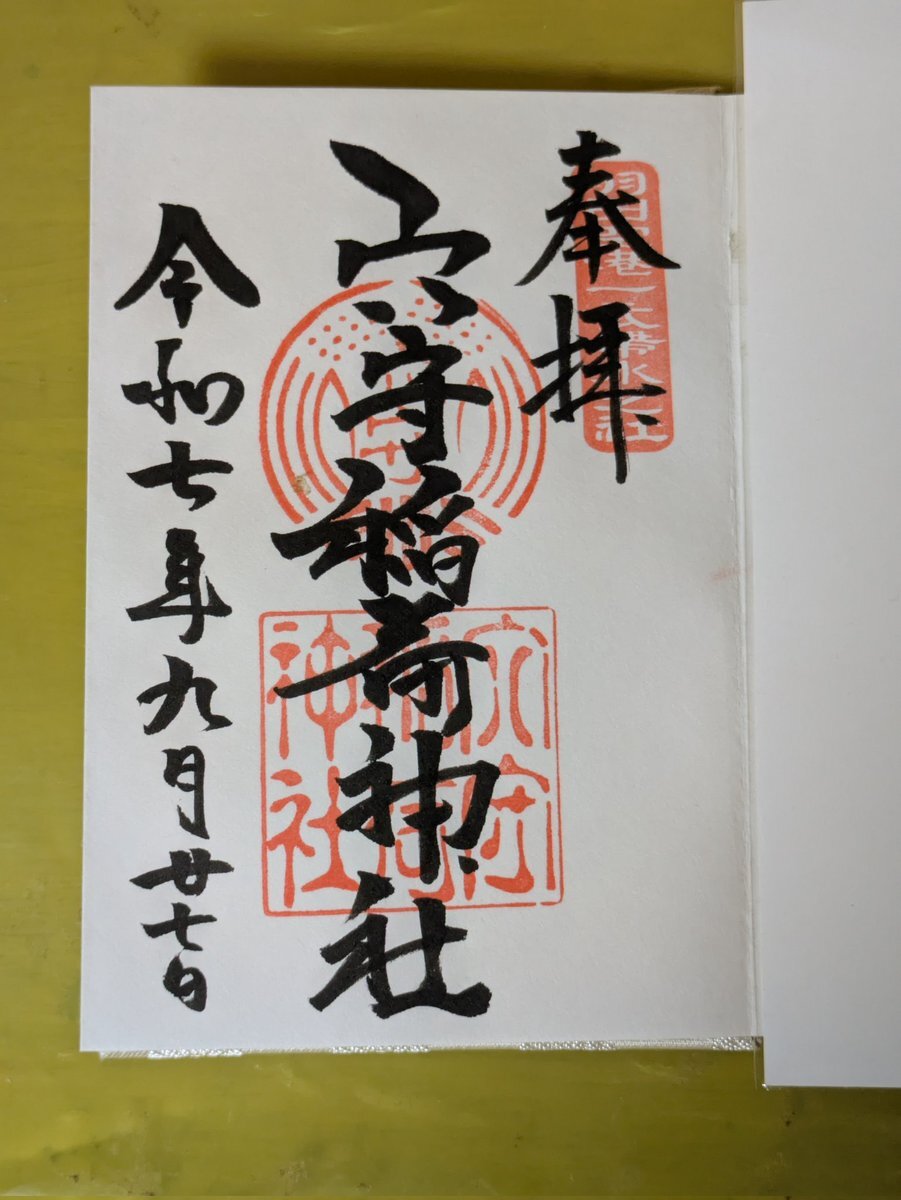 奉拝
穴守稲荷神社
令和七年九月廿七日
穴守
稲荷
神社